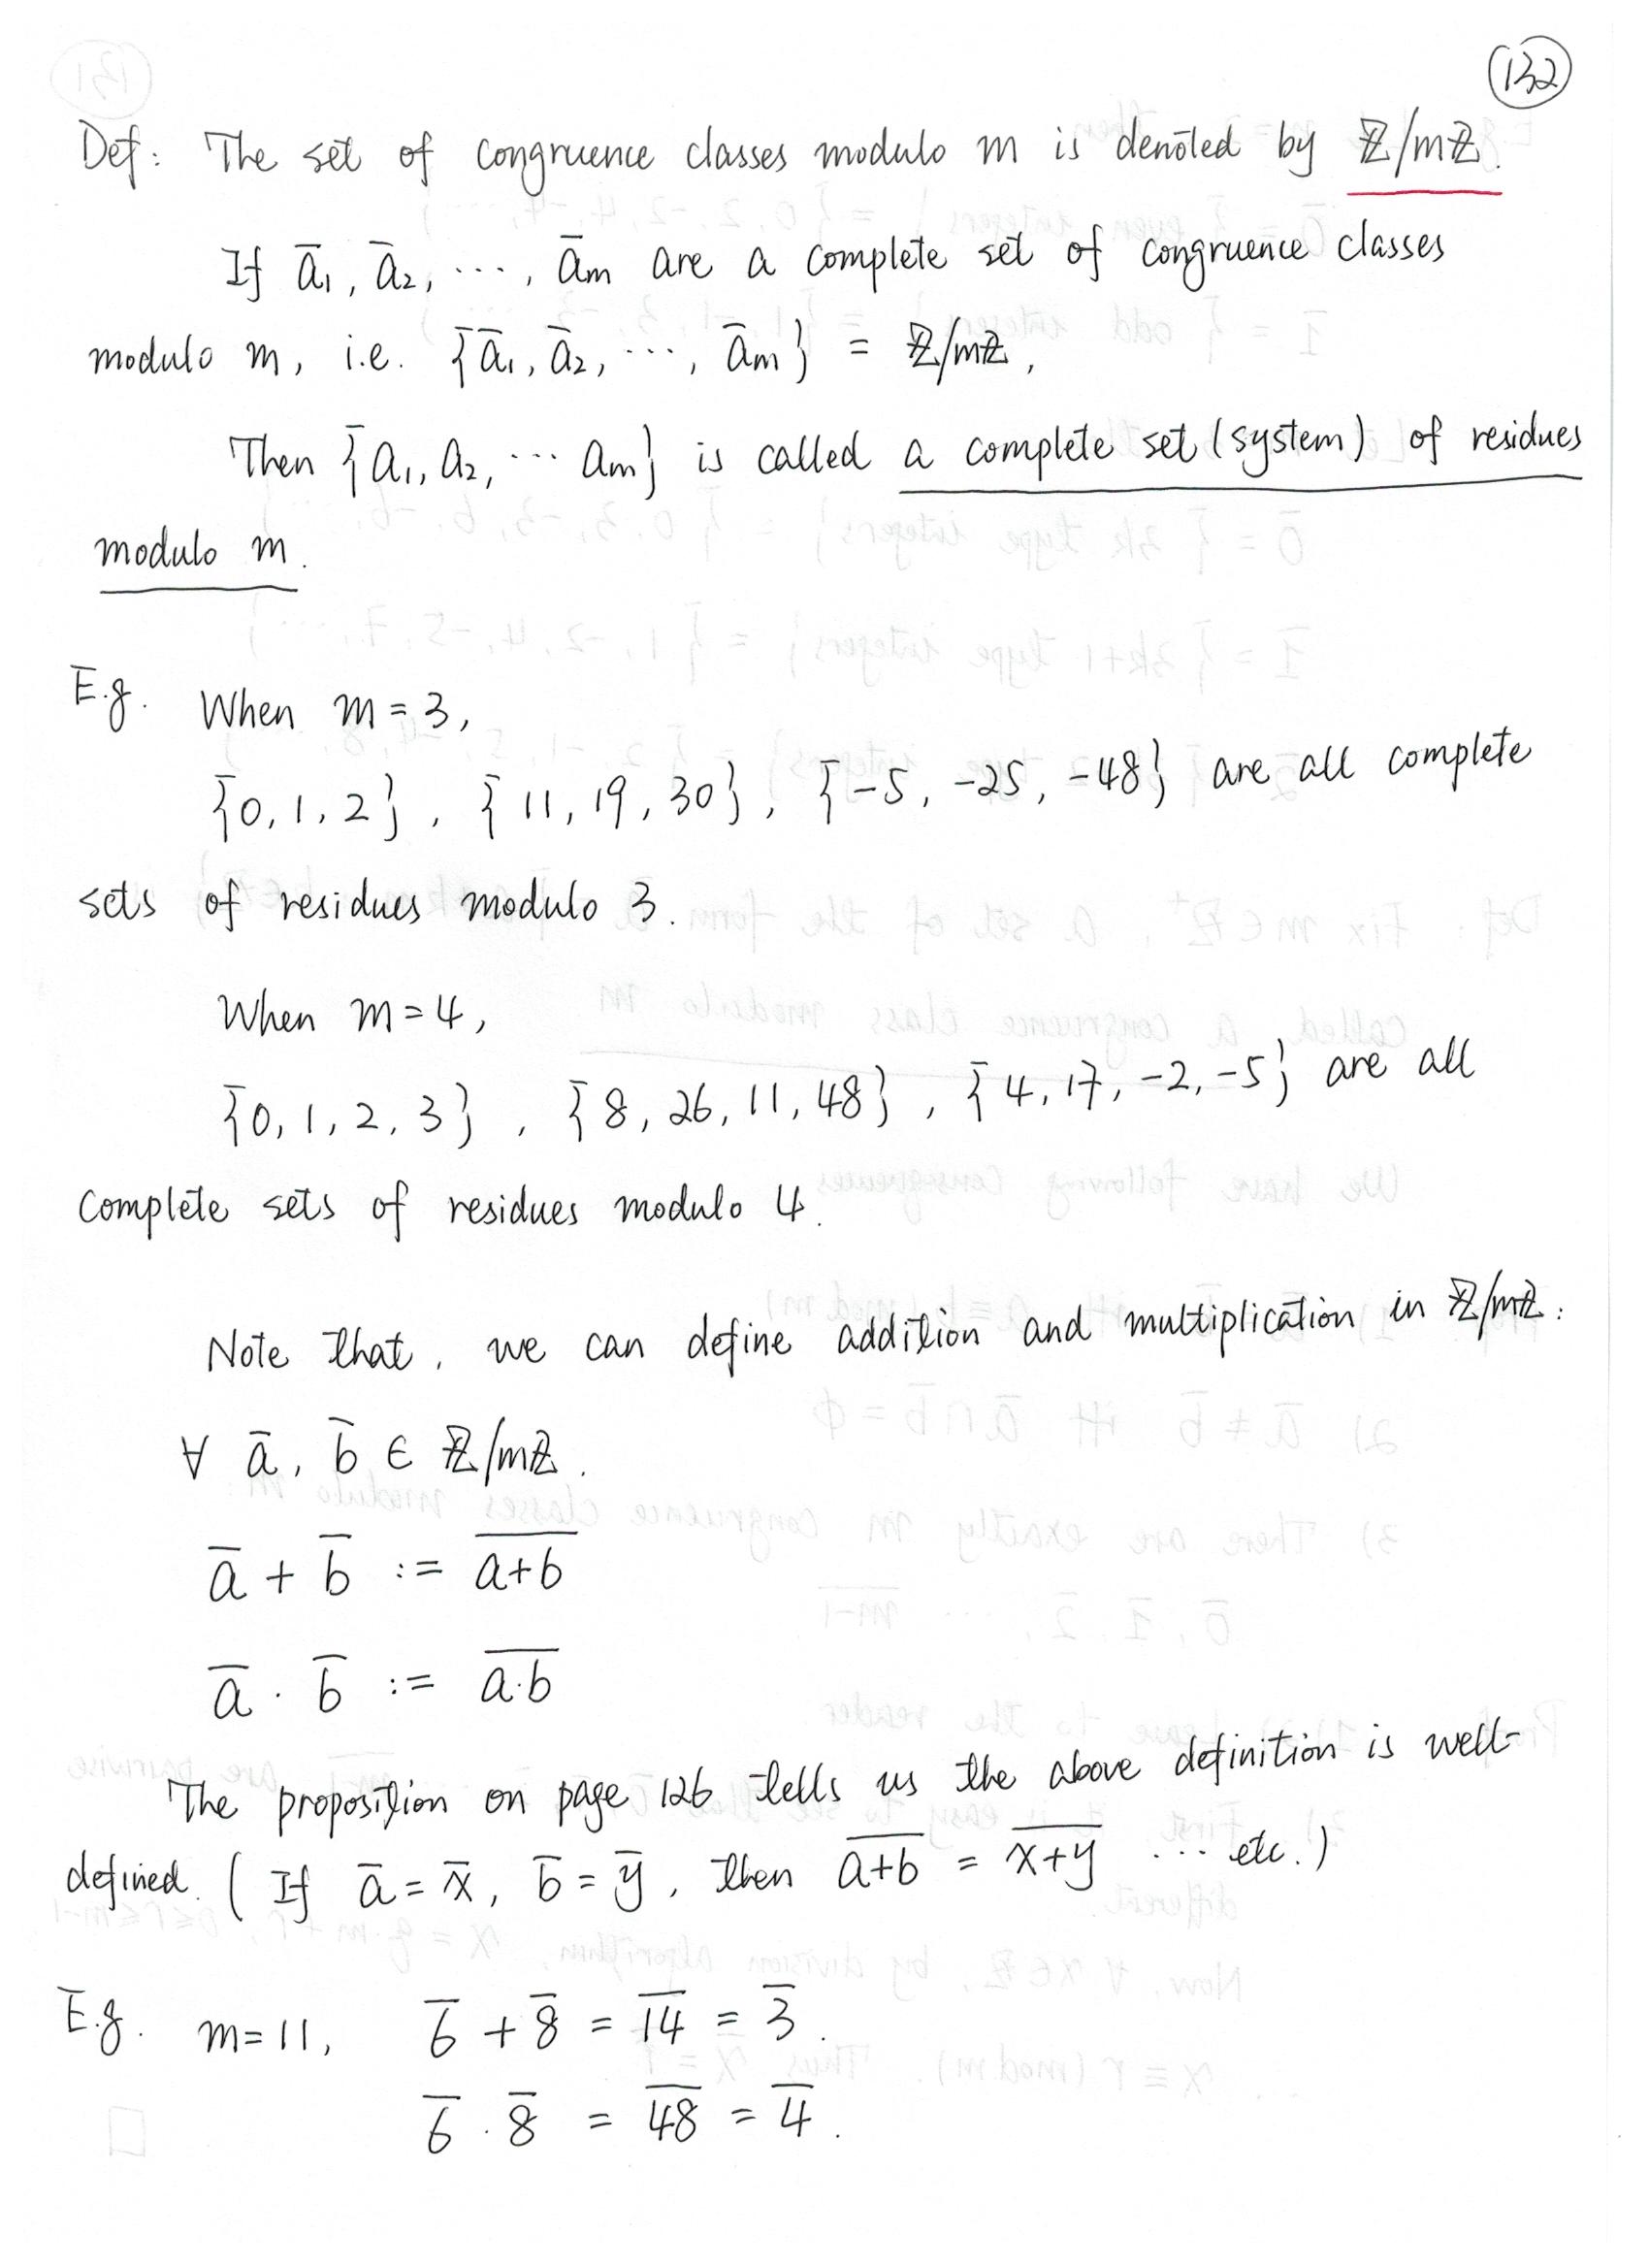 132
Def: The set of congruence classes modulo m is denoted by ℤ/mℤ.
If a̅₁, a̅₂, ⋯, a̅m are a complete set of congruence classes
modulo m, i.e. {a̅₁, a̅₂, ⋯, a̅m} = ℤ/mℤ,
Then {a₁, a₂, ⋯ am} is called a complete set (system) of residues
modulo m.
E.g. When m=3,
{0, 1, 2}, {11, 19, 30}, {-5, -25, -48} are all complete
sets of residues modulo 3.
When m=4,
{0, 1, 2, 3}, {8, 26, 11, 48}, {4, 17, -2, -5} are all
complete sets of residues modulo 4.
Note that, we can define addition and multiplication in ℤ/mℤ:
∀ a̅, b̅ ∈ ℤ/mℤ.
a̅ + b̅ := a̅+̅b̅
a̅ · b̅ := a̅·̅b̅
The proposition on page 126 tells us the above definition is well-
defined. (If a̅ = x̅, b̅ = y̅, then a̅+̅b̅ = x̅+̅y̅ ⋯ etc.)
E.g. m=11, 6̅ + 8̅ = 1̅4̅ = 3̅.
6̅ · 8̅ = 4̅8̅ = 4̅.